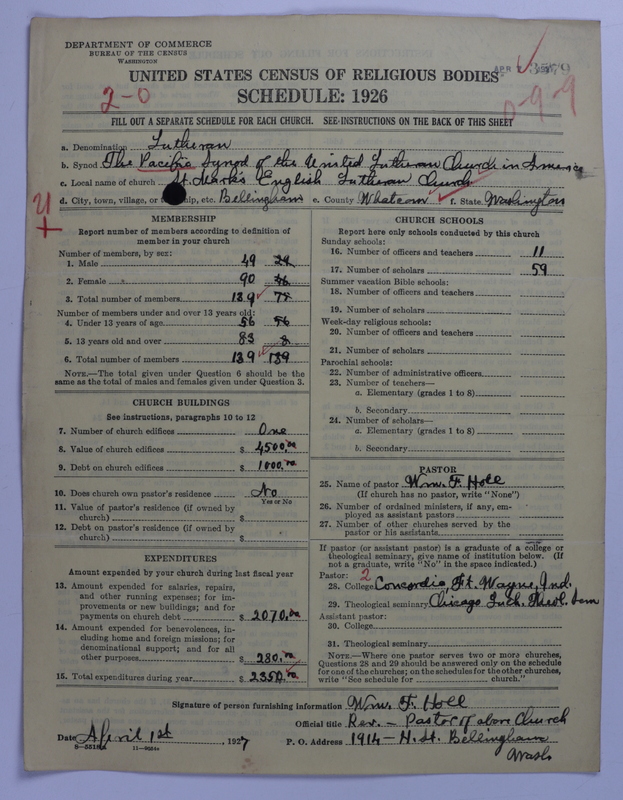 DEPARTMENT OF COMMERCE
BUREAU OF THE CENSUS
WASHINGTON
UNITED STATES CENSUS OF RELIGIOUS BODIES
SCHEDULE: 1926
2-0
0-9-9
FILL OUT A SEPARATE SCHEDULE FOR EACH CHURCH. SEE INSTRUCTIONS ON THE BACK OF THIS SHEET
a. Denomination Lutheran
b. Synod The Pacific Synod of the United Lutheran Church in America
c. Local name of church St. Mark's English Lutheran Church
d. City, town, village, or township, etc. Bellingham e. County Whatcom f. State Washington
MEMBERSHIP
Report number of members according to definition of
member in your church
Number of members, by sex:
1. Male 49
2. Female 90
3. Total number of members 139
Number of members under and over 13 years old:
4. Under 13 years of age 56 56
5. 13 years old and over 83 8
6. Total number of members 139 139
NOTE.—The total given under Question 6 should be
same as the total of males and females given under Question 3.
CHURCH BUILDINGS
See instructions, paragraphs 10 to 12
7. Number of church edifices One
8. Value of church edifices $ 4500.00
9. Debt on church edifices $ 1000.00
10. Does church own pastor's residence No
Yes or No
11. Value of pastor's residence (if owned by
church) $
12. Debt on pastor's residence (if owned by
church) $
EXPENDITURES
Amount expended by your church during last fiscal year
13. Amount expended for salaries, repairs,
and other running expenses; for im-
provements or new buildings; and for
payments on church debt $ 2070.00
14. Amount expended for benevolences, in-
cluding home and foreign missions; for
denominational support; and for all
other purposes $ 280.00
15. Total expenditures during year $ 2350.00
CHURCH SCHOOLS
Report here only schools conducted by this church
Sunday schools:
16. Number of officers and teachers 11
17. Number of scholars 59
Summer vacation Bible schools:
18. Number of officers and teachers
19. Number of scholars
Week-day religious schools:
20. Number of officers and teachers
21. Number of scholars
Parochial schools:
22. Number of administrative officers
23. Number of teachers—
a. Elementary (grades 1 to 8)
b. Secondary
24. Number of scholars—
a. Elementary (grades 1 to 8)
b. Secondary
PASTOR
25. Name of pastor Wm. F. Holl
(If church has no pastor, write "None")
26. Number of ordained ministers, if any, em-
ployed as assistant pastors
27. Number of other churches served by the
pastor or his assistants
If pastor (or assistant pastor) is a graduate of a college or
theological seminary, give name of institution below. (If
not a graduate, write "No" in the space indicated.)
Pastor: 2
28. College Concordia, Ft. Wayne, Ind.
29. Theological seminary Chicago Luth. Theol. Sem
Assistant pastor:
30. College
31. Theological seminary
NOTE.—Where one pastor serves two or more churches,
Questions 28 and 29 should be answered only on the schedule
for one of the churches; on the schedules for the other churches,
write "See schedule for church."
Signature of person furnishing information Wm. F. Holl
Official title Rev. - Pastor of above Church
Date April 1st, 1927 P. O. Address 1914 - H. St. Bellingham
Wash
11-9684